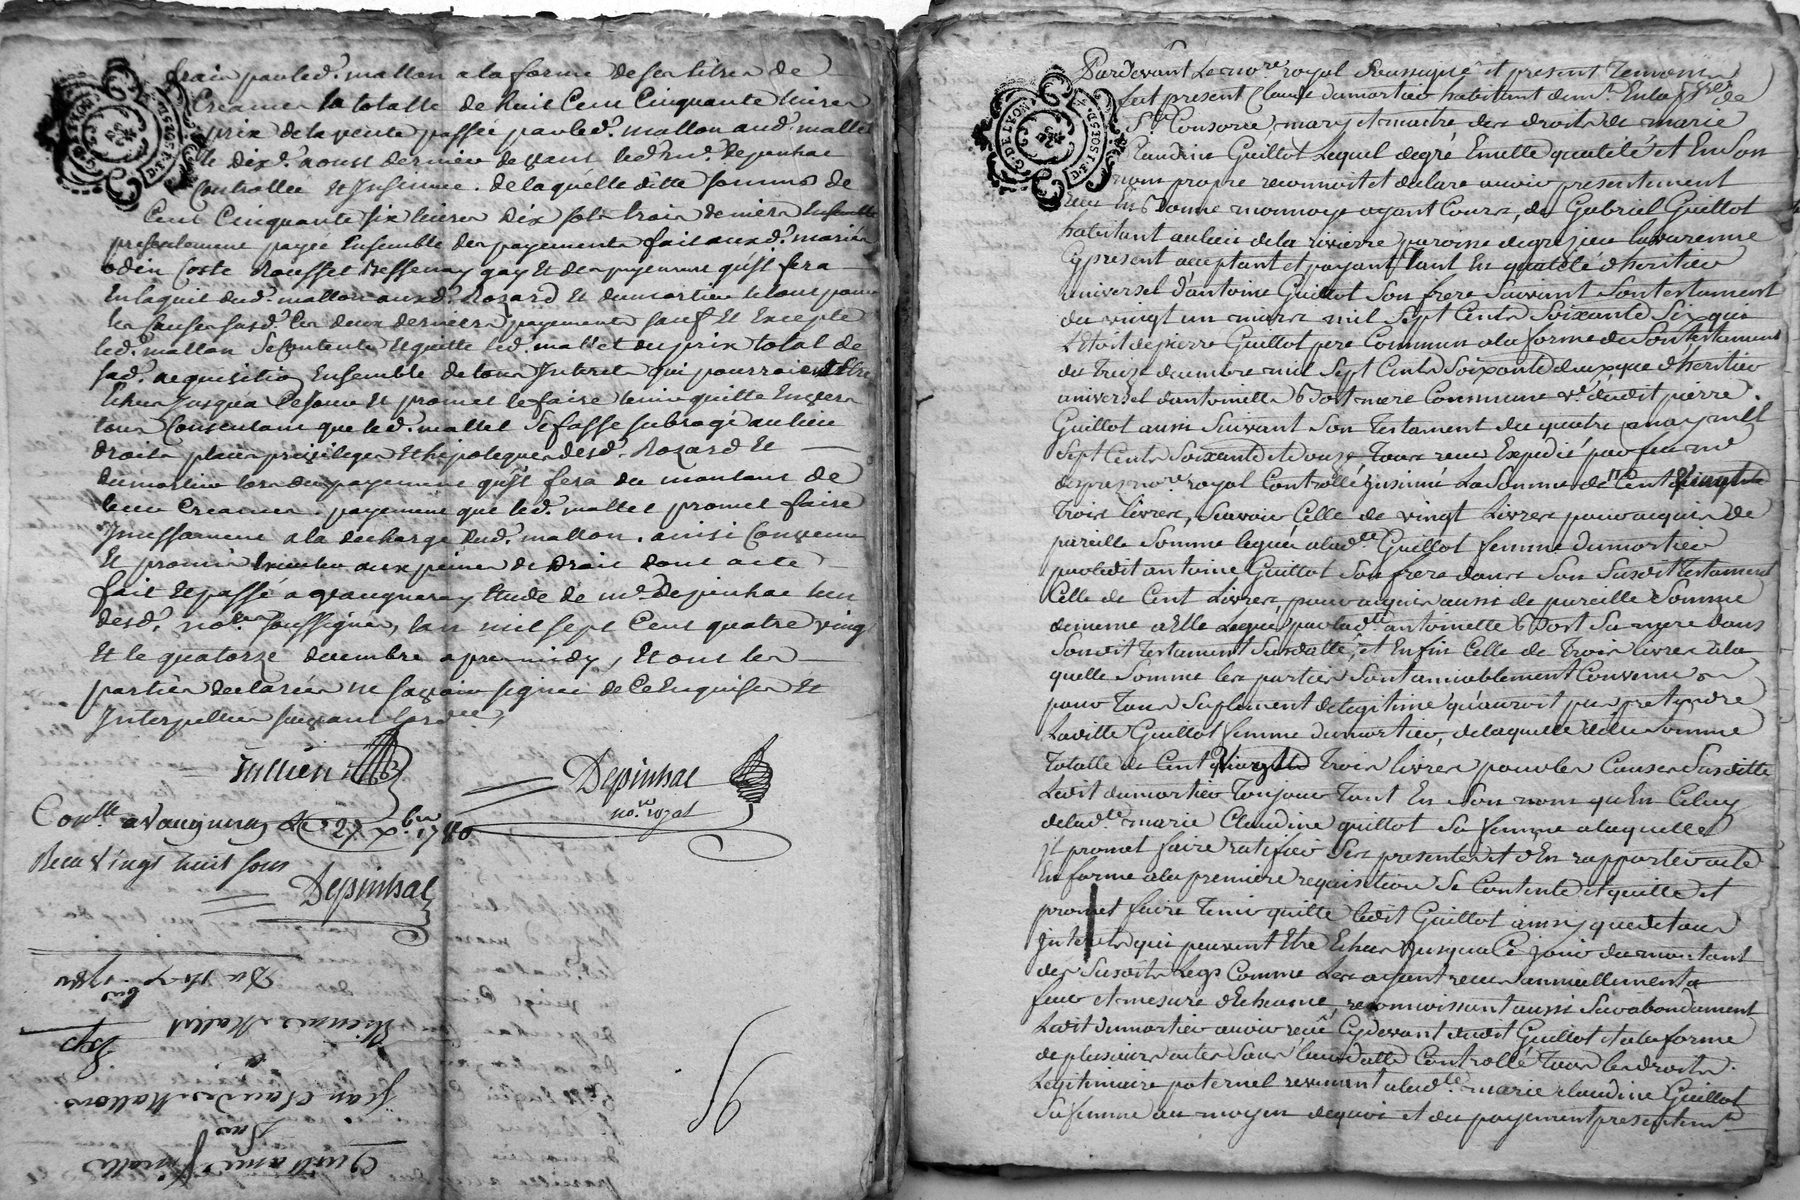 frais par led. mallon a la forme de ses titres de
Creances la totalle de huit Cent Cinquante livres
prix de la vente passée par led. mallon aud. mallet
le dix d. aoust dernier devant led. me. Depinhac
Controllée et Insinuée. de laquelle ditte somme de
Cent Cinquante six livres Dix sols trois deniers
presentement payée Ensemble des payements fait aux d. mariés
odin Coste Rousset Bessenay gay Et des payements qu'il fera
En laquit dud. mallon auxd. Rozard Et dumortier le tout pour
les causes susd. les deux derniers payements sauf Et Excepté
led. mallon Se Contente Et quitte led. mallet du prix total de
sad. acquisition Ensemble de tous Interet qui pourroient
Echus Jusqua Ce jour Et promet le faire tenir quitte Envers
tous Consentant que led. mallet Se fasse subrogé au lieu
droits place privileges Et hipoteques desd. Rozard Et
dumortier lors du payement qu'il fera du montant de
leurs Creances. payement que led. mallet promet faire
Incessamment a la decharge dud. mallon. ainsi Convenu
Et promis Executer aux peines de Droit dont acte
fait Et passé a Vaugneray Etude de me. Depinhac l'un
desd. nores. soussignés, lan mil sept Cent quatre vingt
Et le quatorze decembre apres midy, Et ont les
parties declarées ne sçavoir signer de Ce Enquises Et
Interpellées suivant lordce.
Jullien
Depinhac
nore. royal
Conlle a Vaugneray Le 27 Xbre 1780
Recu Vingt huit sous
Depinhac
Du 14 Xbre 1780
Etienne Mallet
Jean Claude Mallon
Quittance finalle
Pardevant Le nore. royal Soussigné et present Temoins
fut present Claude dumortier habitant
Ste Consorce, mary et maitre des droits de marie
Claudine Guillot Lequel de gré En cette qualité et En Son
nom propre reconnoit et declare avoir presentement
receu En Bonne monnoye ayant Cours, de Gabriel Guillot
habitant au lieu de la rivierre paroisse de grezieu lavarenne
Cy present acceptant et payant, Tant En qualité d'heritier
universel d'antoine Guillot Son frere Suivant Son testament
du vingt un mars mil Sept Cents Soixante Six que
de pierre Guillot pere Commun a la forme de Son testament
du Treize decembre mil Sept Cents Soixante deux que d'heritier
universel d'antoinette Bost mere Commune ve. dudit pierre
Guillot aussi Suivant Son Testament du quatre may mil
Sept Cents Soixante et douze Tous receu Expedié par feu me
despres nore. royal Controllé Insinué La Somme de Cent Vingt
Trois Livres, Scavoir Celle de vingt Livres pour acquis de
pareille Somme leguée a ladte. Guillot femme dumortier
par ledit antoine Guillot Son frere dans Son Susdit Testament
Celle de Cent Livres, pour acquis aussi de pareille Somme
de meme a Elle Leguée par ladte. antoinette Bost Sa mere dans
Son dit Testament Susdatté, et Enfin Celle de Trois livres a la
quelle Somme les parties Sont amiablement Convenu
pour Tout Suplement de legitime qu'auroit pu pretendre
Laditte Guillot femme dumortier, de laquelle ditte Somme
Totalle de Cent Vingt Trois livres pour les Causes Susditte
Ledit dumortier Toujours Tant En Son nom qu'En Celuy
de ladte. marie Claudine guillot Sa femme a laquelle
il promet faire ratifier Ses presentes et d'En rapporter acte
En forme a la premiere requisition Se Contente et quitte et
promet faire Tenir quitte ledit Guillot ainsy que de tous
Interets qui peuvent Etre Echus Jusqua Ce jour du montant
des Susdits Legs Comme Les ayant receu annuellement a
feur et mesure d'Echeance, reconnoissant aussi Surabondament
Ledit dumortier avoir receu Cy devant dudit Guillot et a la forme
de plusieurs actes Sous leurs datte Controllé Tous les droits
Legitimaire paternel revenant a ladte. marie claudine Guillot
Sa femme au moyen de quoi et du payement presentemt.